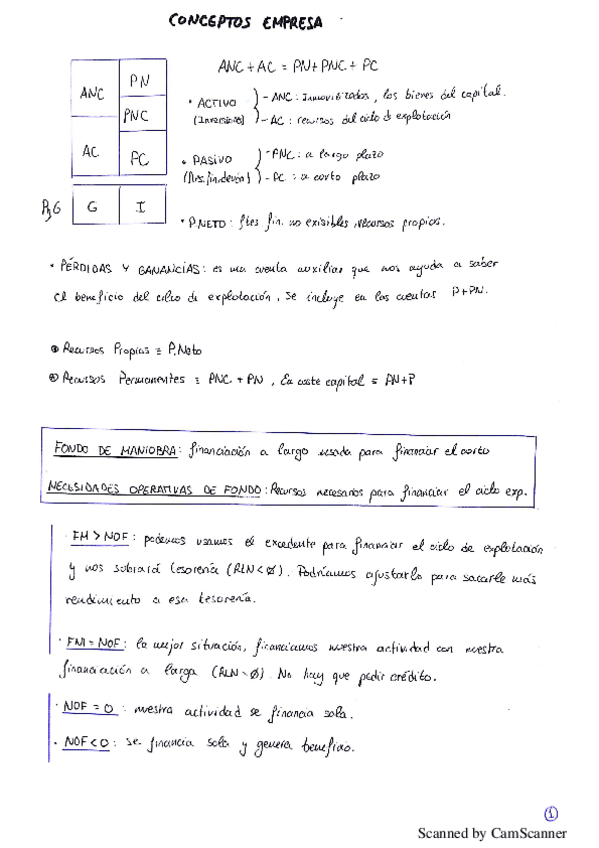 CONCEPTOS EMPRESA
ANC + AC = PN + PNC + PC
ANC PN
PNC
AC PC
PyG G I
• ACTIVO - ANC: Inmovilizados, los bienes del capital.
(Inversión) - AC: recursos del ciclo de explotación
• PASIVO - PNC: a largo plazo
- PC: a corto plazo
• P.NETO: ftes fin. no exisibles, recursos propios.
• PÉRDIDAS Y GANANCIAS: es una cuenta auxiliar que nos ayuda a saber
el beneficio del ciclo de explotación, se incluye en las cuentas P+PN.
Recursos Propios ≡ P.Neto
Recursos Permanentes ≡ PNC + PN, En coste capital = PN+P
FONDO DE MANIOBRA: financiación a largo usada para financiar el corto
NECESIDADES OPERATIVAS DE FONDO: Recursos necesarios para financiar el ciclo exp.
· FM > NOF: podemos usamos el excedente para financiar el ciclo de explotación
y nos sobrará tesorería (RLN<Ø). Podríamos ajustarlo para sacarle más
rendimiento a esa tesorería.
· FM = NOF: la mejor situación, financiamos nuestra actividad con nuestra
financiación a larga (RLN~Ø). No hay que pedir crédito.
· NOF = 0: nuestra actividad se financia sola.
· NOF < 0: se financia sola y genera beneficio.
1
Scanned by CamScanner